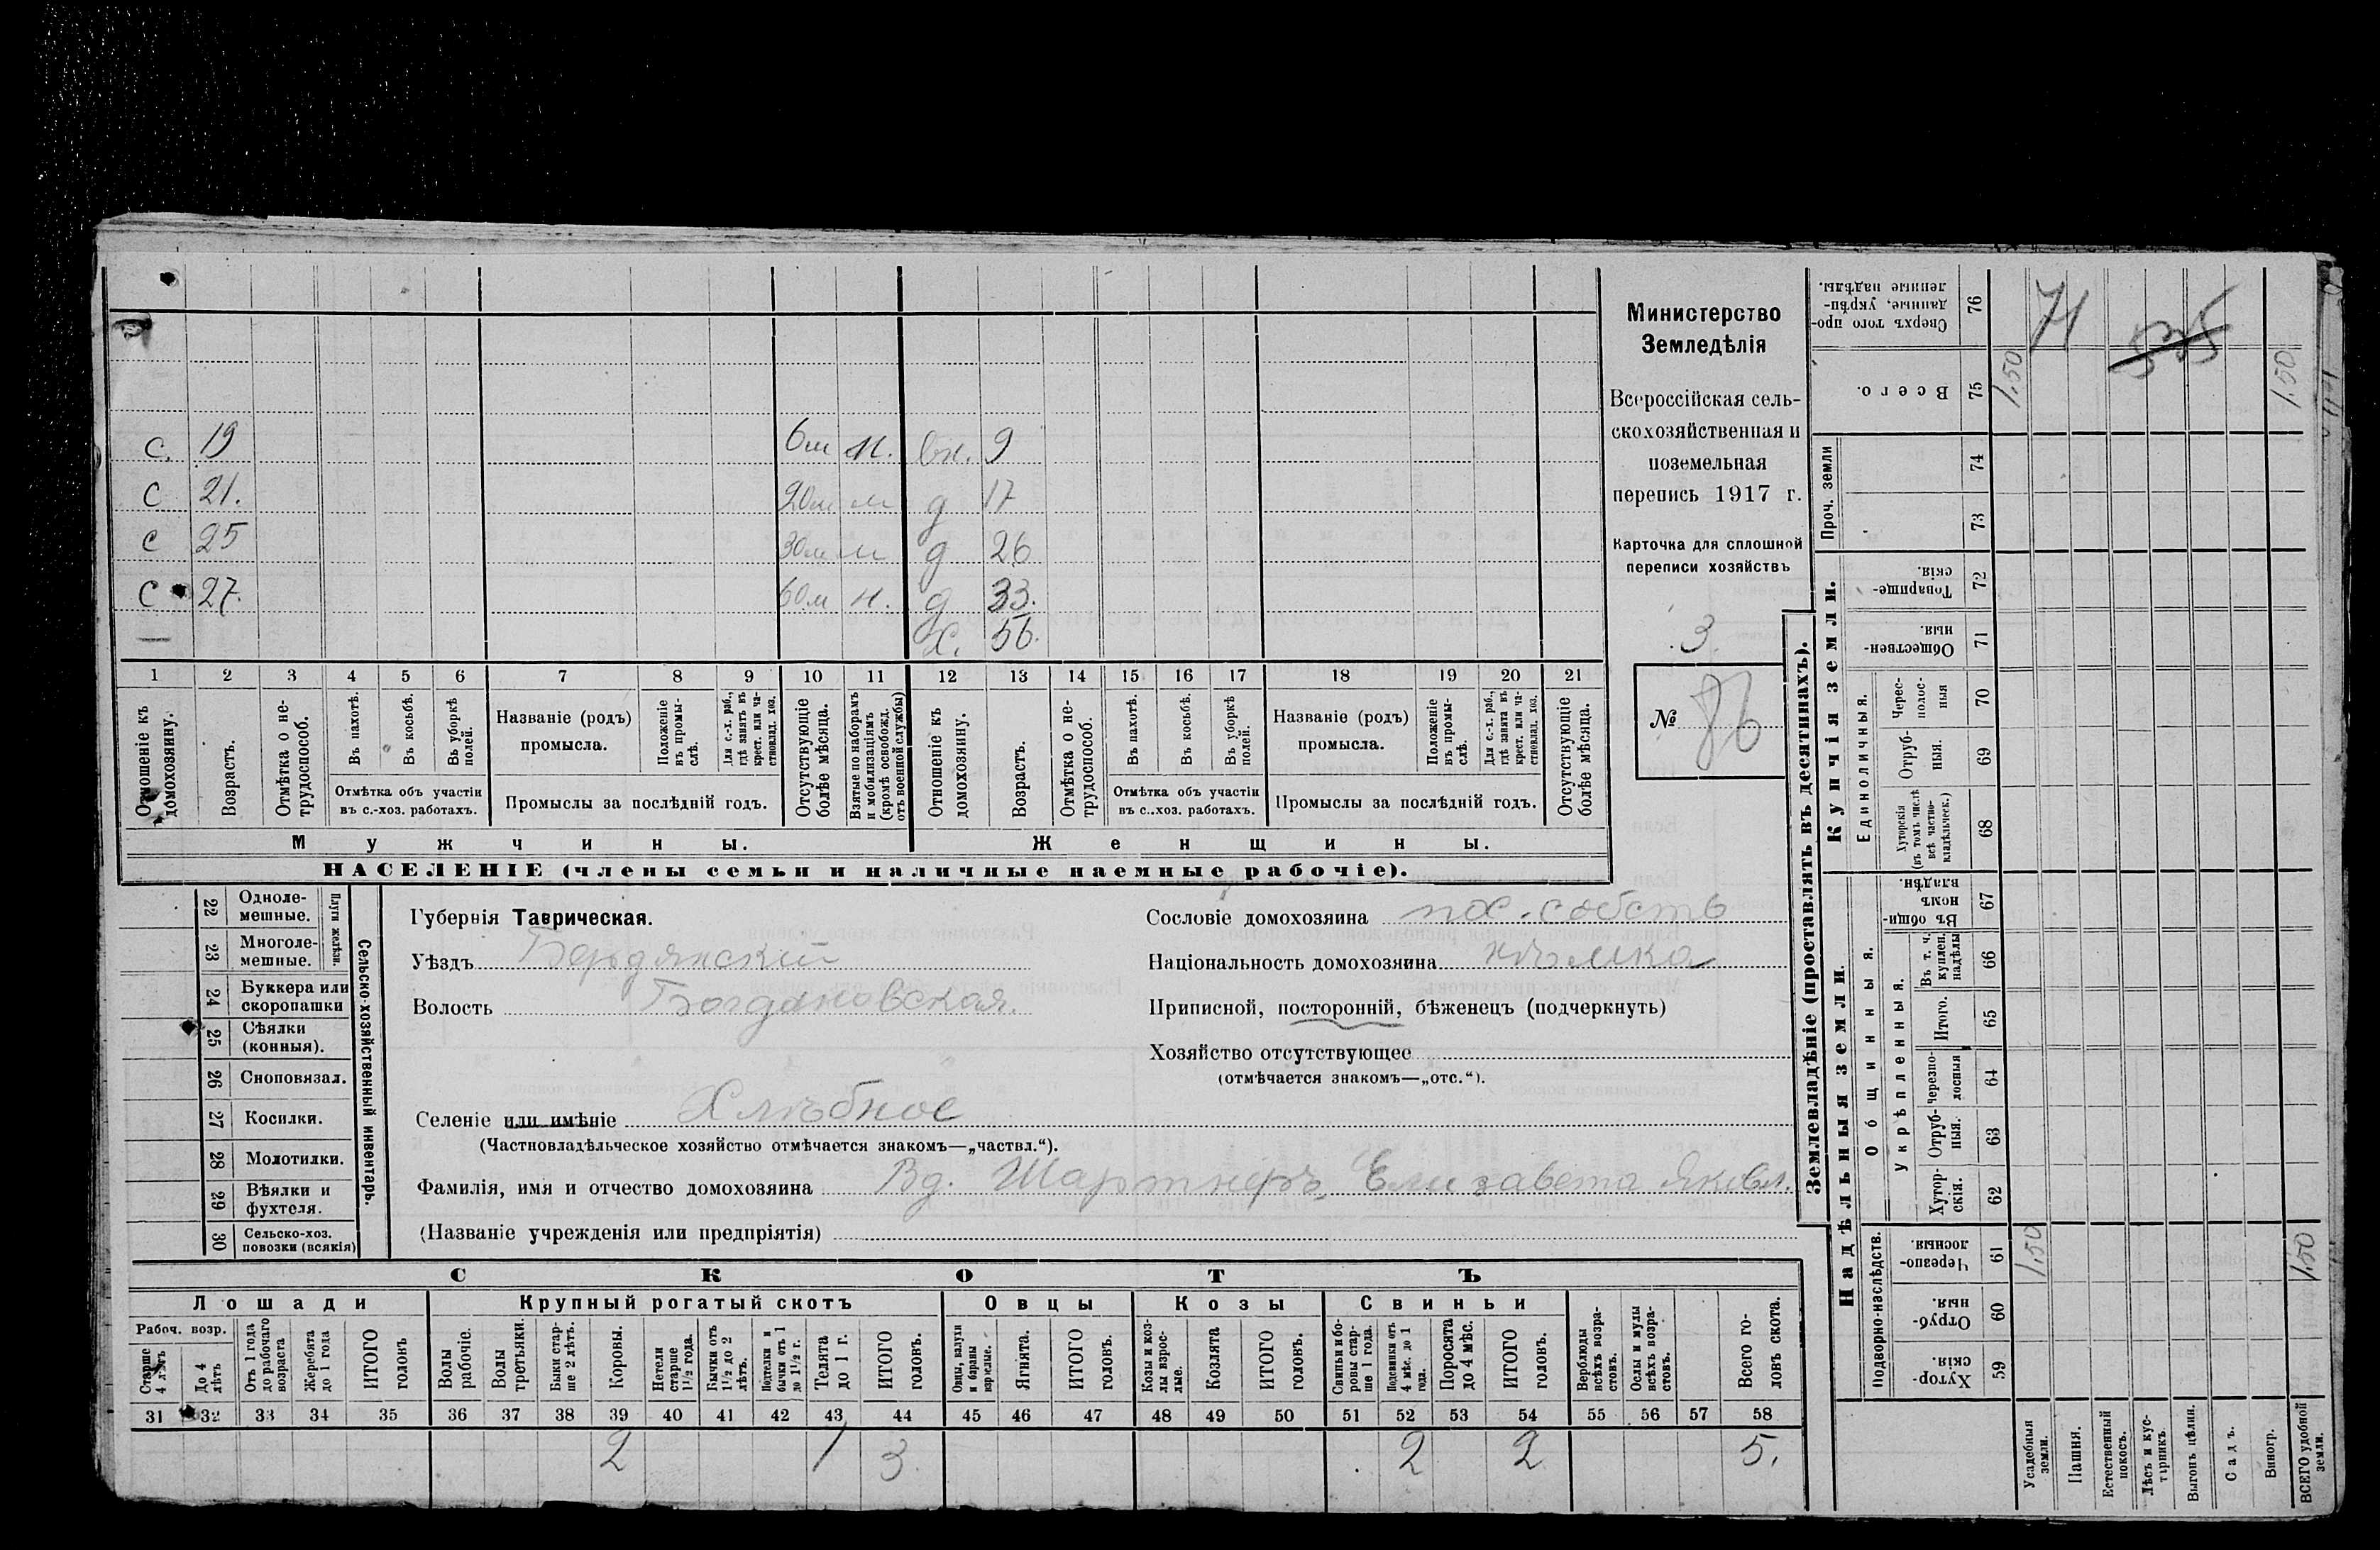 с. 19 6м н. вн. 9
с 21. 20м м д 17
с 25 30м м д 26
с 27. 60м н. д 33.
— х. 56.
1 2 3 4 5 6 7 8 9 10 11 12 13 14 15 16 17 18 19 20 21
Отношеніе къ домохозяину.
Возрастъ.
Отмѣтка о не-трудоспособ.
Въ пахотѣ.
Въ косьбѣ.
Въ уборкѣ полей.
Отмѣтка объ участіи
въ с.-хоз. работахъ.
Названіе (родъ)
промысла.
Положеніе въ промы-слѣ.
Для с.-х. раб., гдѣ занятъ въ крест. или ча-стновлад. хоз.
Промыслы за послѣдній годъ.
Отсутствующіе болѣе мѣсяца.
Взятые по наборамъ и мобилизаціямъ (кромѣ освобожд. отъ военной службы)
Отношеніе къ домохозяину.
Возрастъ.
Отмѣтка о не-трудоспособ.
Въ пахотѣ.
Въ косьбѣ.
Въ уборкѣ полей.
Отмѣтка объ участіи
въ с..хоз. работахъ.
Названіе (родъ)
промысла.
Положеніе въ промы-слѣ.
Для с.-х. раб., гдѣ занята въ крест. или ча-стновлад. хоз.
Промыслы за послѣдній годъ.
Отсутствующіе болѣе мѣсяца.
Мужчины. Женщины.
НАСЕЛЕНІЕ (члены семьи и наличные наемные рабочіе).
Министерство
Земледѣлія
Всероссійская сель-
скохозяйственная и
поземельная
перепись 1917 г.
Карточка для сплошной
переписи хозяйствъ
3.
№ 86
22 Одноле-мешные.
23 Многоле-мешные.
Плуги желѣзн.
24 Буккера или скоропашки
25 Сѣялки (конныя).
26 Сноповязал.
27 Косилки.
28 Молотилки.
29 Вѣялки и фухтеля.
30 Сельско-хоз. повозки (всякія)
Сельско-хозяйственный инвентарь.
Губернія Таврическая.
Уѣздъ Бердянскій
Волость Богдановская.
Селеніе или имѣніе Хлѣбное
(Частновладѣльческое хозяйство отмѣчается знакомъ—„частвл.“).
Фамилія, имя и отчество домохозяина Вд. Шартнеръ, Елизавета Яковл.
(Названіе учрежденія или предпріятія)
Сословіе домохозяина пос. собств
Національность домохозяина нѣмка
Приписной, посторонній, бѣженецъ (подчеркнуть)
Хозяйство отсутствующее
(отмѣчается знакомъ—„отс.“).
СКОТЪ
Лошади Крупный рогатый скотъ Овцы Козы Свиньи
Рабоч. возр.
Старше 4 лѣтъ
До 4 лѣтъ
Отъ 1 года до рабочаго возраста
Жеребята до 1 года
ИТОГО головъ
Волы рабочіе.
Волы третьяки.
Быки стар-ше 2 лѣтъ.
Коровы.
Нетели старше 1½ года.
Бычки отъ 1½ до 2 лѣтъ.
Подтелки и бычки отъ 1 до 1½ г.
Телята до 1 г.
ИТОГО головъ.
Овцы, валухи и бараны взрослые.
Ягнята.
ИТОГО головъ.
Козы и коз-лы взрос-лые.
Козлята
ИТОГО головъ.
Свиньи и бо-ровы стар-ше 1 года.
Подсвинки отъ 4 мѣс. до 1 года.
Поросята до 4 мѣс.
ИТОГО головъ.
Верблюды всѣхъ возра-стовъ.
Ослы и мулы всѣхъ возра-стовъ.
Всего го-ловъ скота.
31 32 33 34 35 36 37 38 39 40 41 42 43 44 45 46 47 48 49 50 51 52 53 54 55 56 57 58
2 1 3 2 2 5.
Землевладѣніе (проставлять въ десятинахъ).
Купчія земли.
Надѣльныя земли.
Сверхъ того про-данные, укрѣп-ленные надѣлы. 76
Всего. 75
Проч. земли 74 73
Товарище-скія. 72
Обществен-ныя. 71
Единоличныя.
Черес-полос-ныя 70
Отруб-ныя. 69
Хуторскія (въ томъ числѣ всѣ частно-владѣльческ.) 68
Общинныя.
Въ общи-номъ владѣн. 67
Укрѣпленныя.
Въ т. ч. куплен. надѣлы 66
Итого. 65
Черезпо-лосныя 64
Отруб-ныя. 63
Хутор-скія. 62
Подворно-наслѣдств.
Черезпо-лосныя. 61
Отруб-ныя. 60
Хутор-скія. 59
71
535
1.50 1.50
1.50 1.50
Усадебныя земли.
Пашня.
Естественный покосъ.
Лѣсъ и кус-тарникъ.
Выгонъ цѣлин.
Садъ.
Виногр.
ВСЕГО удобной земли.